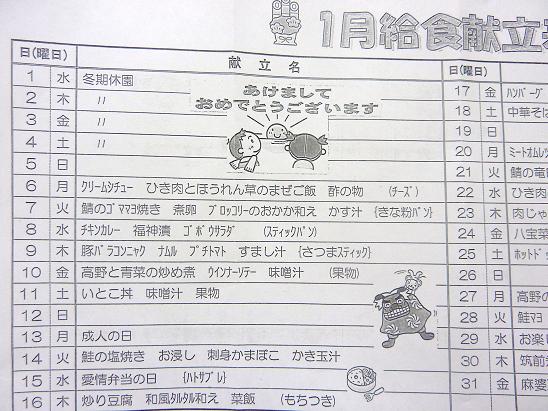 1月給食献立
日(曜日) 献立名
1 水 冬期休園
2 木 〃
3 金 〃
4 土 〃
5 日
あけまして
おめでとうございます
6 月 クリームシチュー ひき肉とほうれん草のまぜご飯 酢の物 (チーズ)
7 火 鯖のゴママヨ焼き 煮卵 ブロッコリーのおかか和え かす汁 {きな粉パン}
8 水 チキンカレー 福神漬 ゴボウサラダ (スティックパン)
9 木 豚バラコンニャク ナムル プチトマト すまし汁 {さつまスティック}
10 金 高野と青菜の炒め煮 ウインナーソテー 味噌汁 (果物)
11 土 いとこ丼 味噌汁 果物
12 日
13 月 成人の日
14 火 鮭の塩焼き お浸し 刺身かまぼこ かき玉汁
15 水 愛情弁当の日 {ハトサブレ}
16 木 炒り豆腐 和風タルタル和え 菜飯 (もちつき)
日(曜日)
17 金 ハンバーグ
18 土 中華そば
19 日
20 月 ミートオムレツ
21 火 鯖の竜田
22 水 ひき肉
23 木 肉じゃ
24 金 八宝菜
25 土 ホットドッ
26 日
27 月 高野の
28 火 鮭マヨ
29 水 お楽し
30 木 筑前
31 金 麻婆